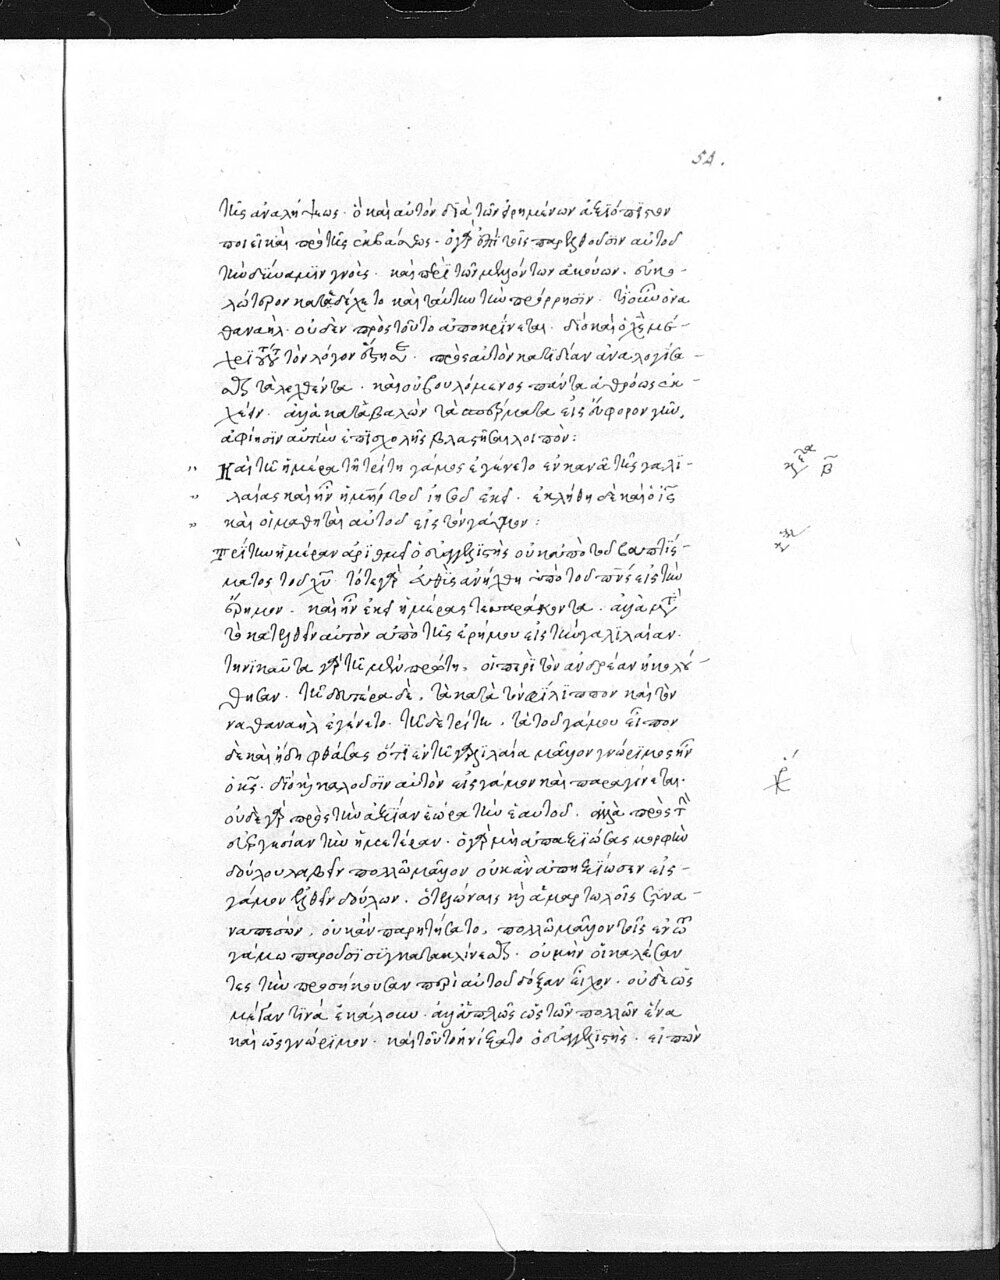 54.
τῆς ἀναλήψεως· ὃ καὶ αὐτὸν διὰ τῶν εἰρημένων ἀξιόπιστον
ποιεῖ καὶ πρὸ τῆς ἐκβάσεως· ὁ γὰρ ἐπὶ τοῖς παρελθοῦσιν αὐτοῦ
τὴν δύναμιν γνοὺς· καὶ περὶ τῶν μελλόντων ἀκούων·
κατεδέχετο καὶ ταύτην τὴν πρόρρησιν·
θαναὴλ· οὐδὲν πρὸς τοῦτο ἀποκρίνεται· διὸ καὶ ὁ χς μέ-
χρι τούτου τὸν λόγον ἔστησεν· πρὸς αὐτὸν κατιδίαν ἀναλογίσα-
σθαι τὰ λεχθέντα· καὶ οὐ βουλόμενος πάντα ἀθρόως ἐκ-
χέειν· ἀλλὰ καταβαλὼν τὰ σπέρματα εἰς εὔφορον γῆν,
ἀφίησιν αὐτὴν ἐπὶ σχολῆς βλαστῆσαι λοιπὸν:
Καὶ τῇ ἡμέρα τῇ τρίτη γάμος ἐγένετο ἐν κανᾶ τῆς γαλι-
λαίας καὶ ἦν ἡ μηρ τοῦ ιησοῦ ἐκεῖ· ἐκλήθη δὲ καὶ ὁ ις
καὶ οἱ μαθηταὶ αὐτοῦ εἰς τὸν γάμον:
Τρίτην ἡμέραν ἀριθμεῖ ὁ εὐαγγελιστὴς οὐκ ἀπὸ τοῦ βαπτίσ-
ματος τοῦ χυ· τότε γὰρ εὐθὺς ἀνήχθη ὑπὸ τοῦ πνς εἰς τὴν
ἔρημον· καὶ ἦν ἐκεῖ ἡμέρας τεσσαράκοντα· ἀλλὰ μετὰ
τὸ κατελθεῖν αὐτὸν ἀπὸ τῆς ἐρήμου εἰς τὴν γαλιλαίαν·
τηνικαῦτα γὰρ τῇ μὲν πρώτη, οἱ περὶ τὸν ἀνδρέαν ἠκολού-
θησαν· τῇ δευτέρα δὲ, τὰ κατὰ τὸν φίλιππον καὶ τὸν
ναθαναὴλ ἐγένετο· τῇ δὲ τρίτη, τὰ τοῦ γάμου εἶπον
δὲ καὶ ἤδη φθάσας ὅτι ἐν τῇ γαλιλαία μᾶλλον γνώριμος ἦν
ὁ κς· διὸ καὶ καλοῦσιν αὐτὸν εἰς γάμον καὶ παραγίνεται·
οὐδὲ γὰρ πρὸς τὴν ἀξίαν ἑώρα τὴν ἑαυτοῦ· ἀλλὰ πρὸς τὴν
εὐεργεσίαν τὴν ἡμετέραν· ὁ γὰρ μὴ ἀπαξιώσας μορφὴν
δούλου λαβεῖν πολλῶ μᾶλλον οὐκ ἂν ἀπηξίωσεν εἰς
γάμον ἐλθεῖν δούλων· ὁ τελώναις καὶ ἁμαρτωλοῖς συνα-
ναπεσὼν, οὐκ ἂν παρητήσατο, πολλῶ μᾶλλον τοῖς ἐν τῶ
γάμω παροῦσι συγκατακλίνεσθαι· οὐ μὴν οἱ καλέσαν
τες τὴν προσήκουσαν περὶ αὐτοῦ δόξαν εἶχον· οὐδὲ ὡς
μέγαν τινὰ ἐκάλουν· ἀλλ' ἁπλῶς ὡς τῶν πολλῶν ἕνα
καὶ ὡς γνώριμον· καὶ τοῦτο ἠνίξατο ὁ εὐαγγελιστὴς· εἰπὼν